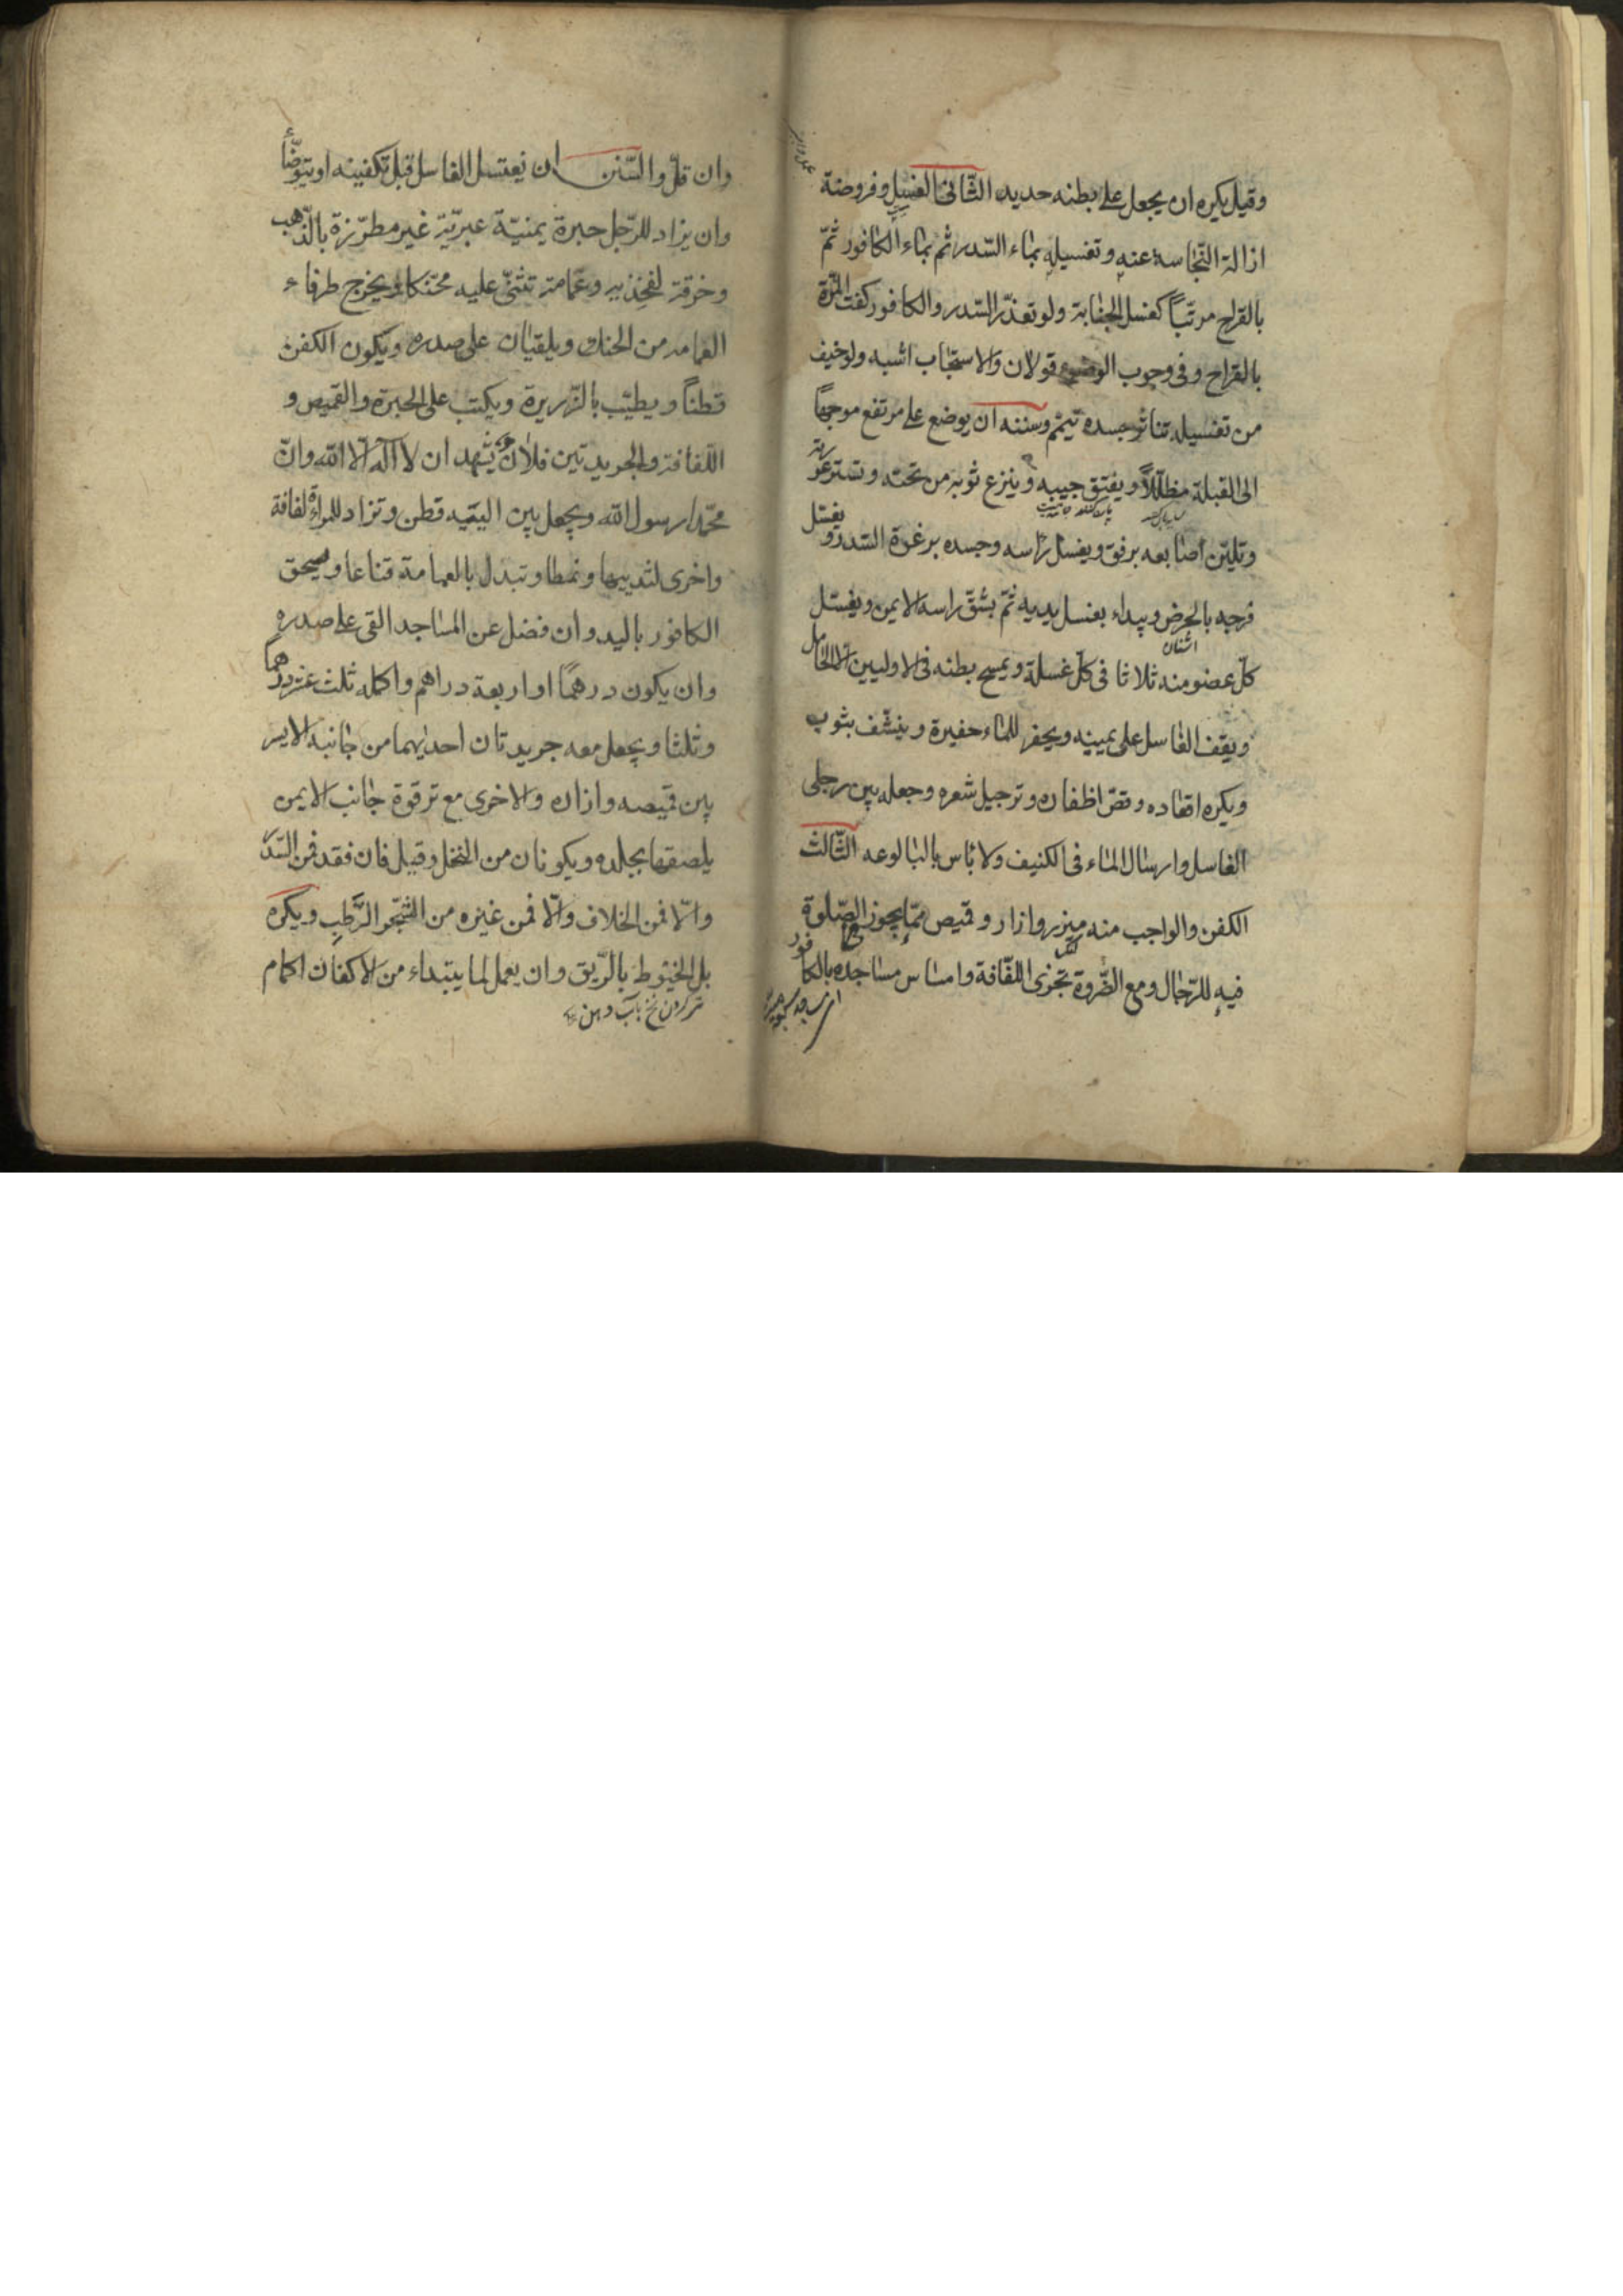 وقيل يكره ان يجعل على بطنه حديد الثّانى الغسل وفروضة
ازالة النّجاسة عنه وتغسيله بماء السّدر ثم بماء الكافور ثمّ
بالقراح مرتّباً كغسل الجنابة ولو تعذّر السّدر والكافور كفت المرّة
بالقراح وفى وجوب الوضوء قولان والاستحباب اشبه ولو خيف
من تغسيله تناثر جسده تيمّم وسننه ان يوضع على مرتفع موجهاً
الى القبلة مظلّلاً ويفتق جيبه وينزع ثوبه من تحته وتستر عورته
وتليّن اصابعه برفق ويغسل راسه وجسده برغوة السّدر ويغسل
فرجه بالحرض ويبداء بغسل يديه ثمّ بشقّ راسه الايمن ويغسل
اشنان
كلّ عضو منه ثلاثا فى كلّ غسلة ويمسح بطنه فى الاوليين الّا الحامل
ويقف الغاسل على يمينه ويحفر للماء حفيرة وينشّف بثوب
ويكره اقعاده وقصّ اظفاره وترجيل شعره وجعله بين رجلى
الغاسل وارسال الماء فى الكنيف ولا باس بالبالوعه الثّالث
الكفن والواجب منه ميزر وازار وقميص ممّا يجوز الصّلوة
فيه للرّجال ومع الضّروة تجزى اللفّافة وامساس مساجده بالكافور
وان قلّ والسّنن ان يغتسل الغاسل قبل تكفينه او يتوضّأ
وان يزاد للرّجل حبرة يمنيّة عبريّة غير مطرّزة بالذّهب
وخرقة لفخذيه وعمامة تثنّى عليه محنّكا ويخرج طرفاء
العمامه من الحنك ويلقيان على صدره ويكون الكفن
قطناً ويطيّب بالذّريرة ويكتب على الحبرة والقميص و
اللّفافة والجريدتين فلان يشهد ان لا اله الّا اللّه وانّ
محمّدا رسول اللّه ويجعل بين اليتيه قطن وتزاد للمراة لفافة
واخرى لثدييها ونمطا وتبدل بالعمامة قناعا ويسحق
الكافور باليد وان فضل عن المساجد القى على صدره
وان يكون درهمًا او اربعة دراهم واكمله ثلث عشر درهمًا
وثلثا ويجعل معه جريدتان احديهما من جانبه الايسر
بين قميصه وازاره والاخرى مع ترقوة جانب الايمن
يلصقها بجلده ويكونان من النخل وقيل فان فقد فمن السّدر
والّا فمن الخلاف والّا فمن غيره من الشّجر الرّطب ويكره
بل الخيوط بالرّيق وان يعمل لما يبتداء من الاكفان اكمام
تر كردن نخ بآب دهن